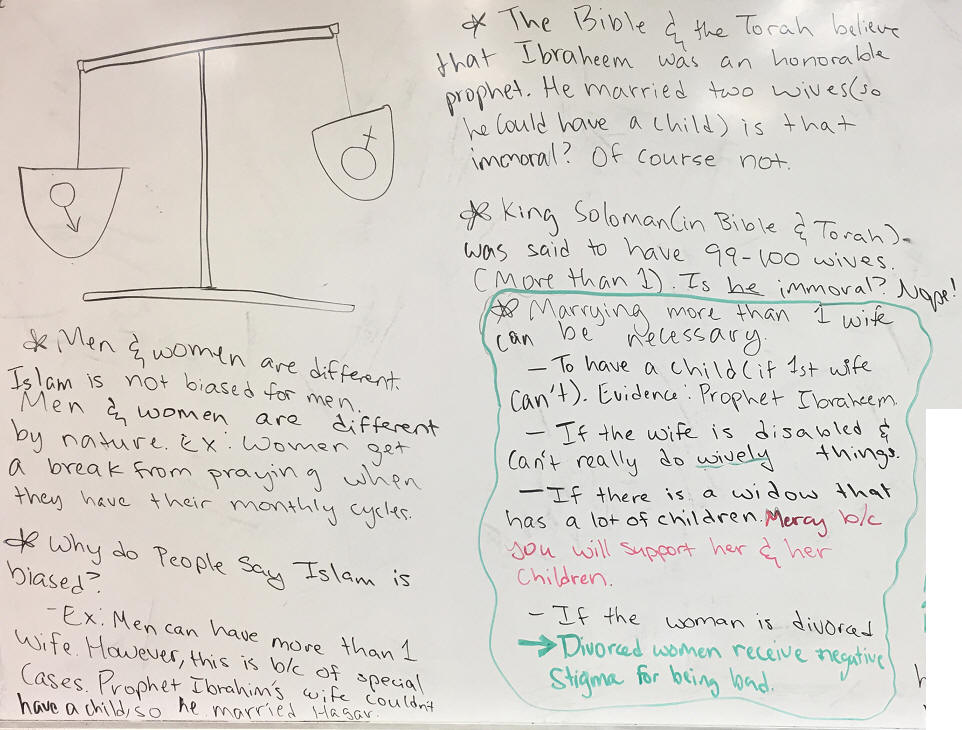 * Men & women are different.
Islam is not biased for men.
Men & women are different
by nature. Ex: Women get
a break from praying when
they have their monthly cycles.
* Why do People Say Islam is
biased?
- Ex: Men can have more than 1
Wife. However, this is b/c of special
Cases. Prophet Ibrahim's wife couldn't
have a child, so he married Hagar.
* The Bible & the Torah believe
that Ibraheem was an honorable
prophet. He married two wives (so
he could have a child) is that
immoral? Of course not.
* King Soloman (in Bible & Torah)-
was said to have 99-100 wives.
(More than 1). Is he immoral? Nope!
* Marrying more than 1 wife
can be necessary.
- To have a child (if 1st wife
can't). Evidence: Prophet Ibraheem.
- If the wife is disabled &
can't really do wively things.
- If there is a widow that
has a lot of children. Mercy b/c
you will support her & her
children.
- If the woman is divorced
→ Divorced women receive negative
Stigma for being bad.